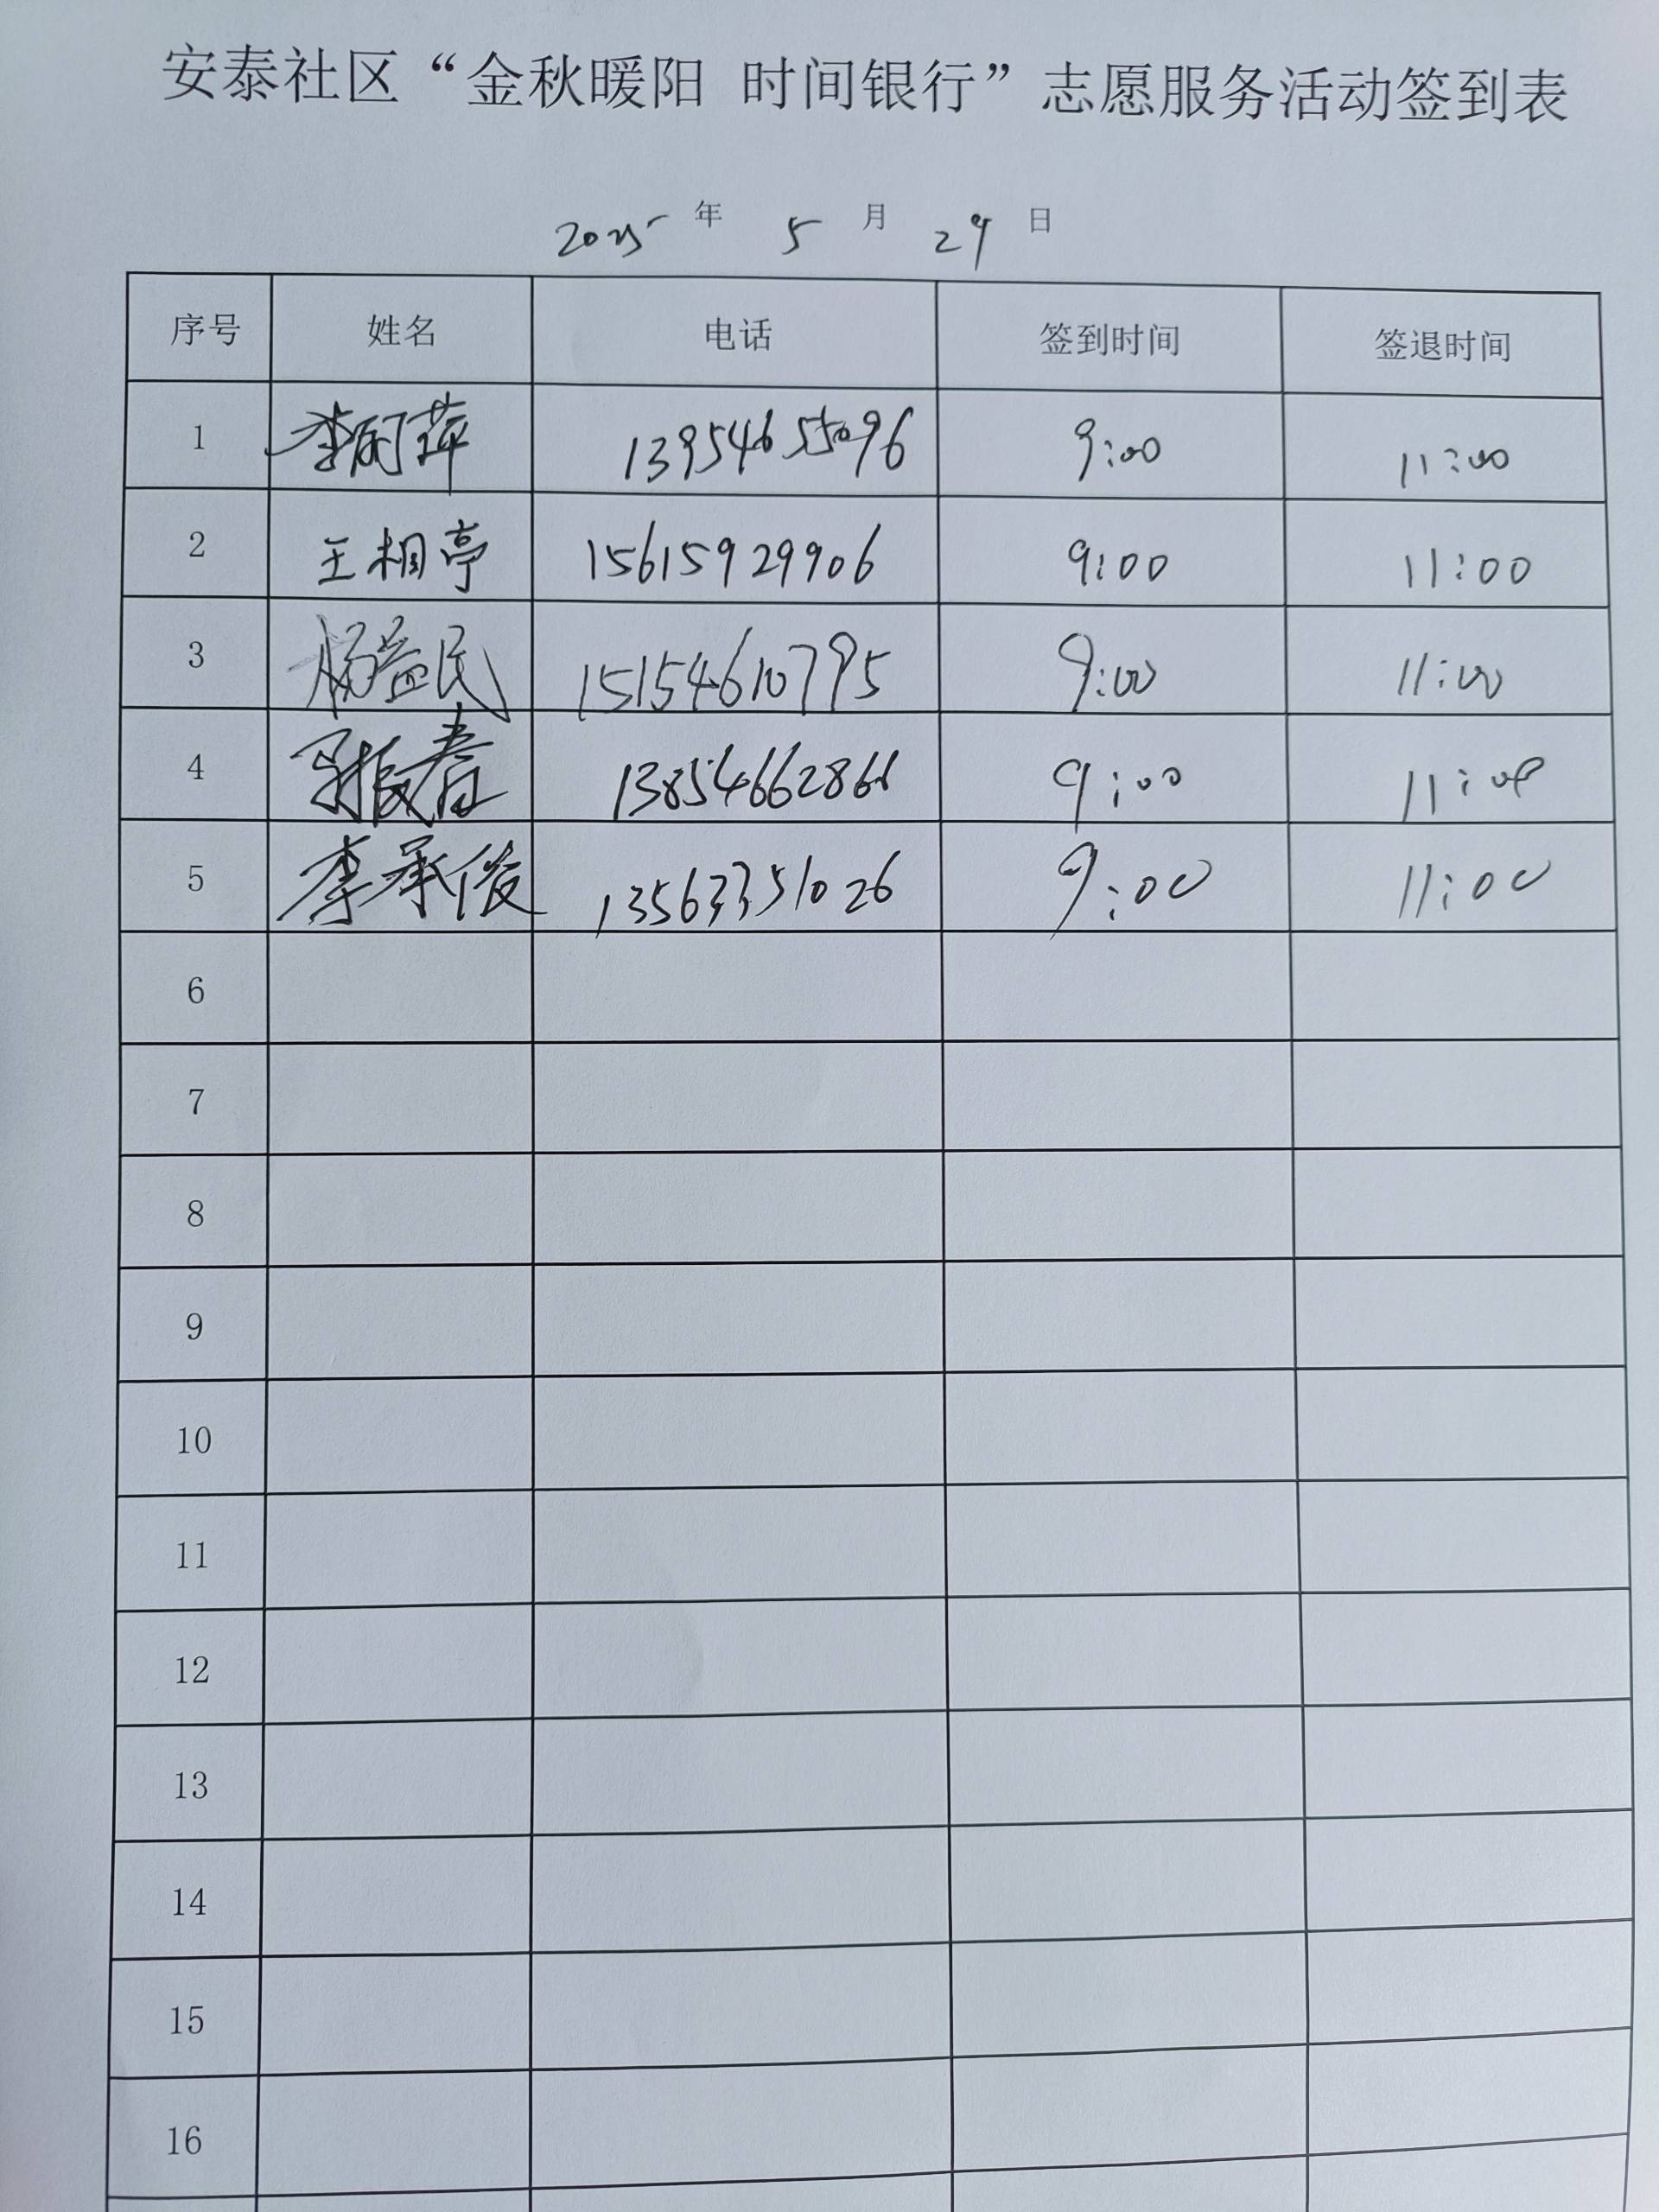 安泰社区“金秋暖阳 时间银行”志愿服务活动签到表
2025年 5月 29日
序号 姓名 电话 签到时间 签退时间
1 李丽萍 13954655096 9:00 11:00
2 王相亭 15615929906 9:00 11:00
3 杨益民 15154610795 9:00 11:00
4 振春 13854662866 9:00 11:00
5 李承俊 13563351026 9:00 11:00
6
7
8
9
10
11
12
13
14
15
16